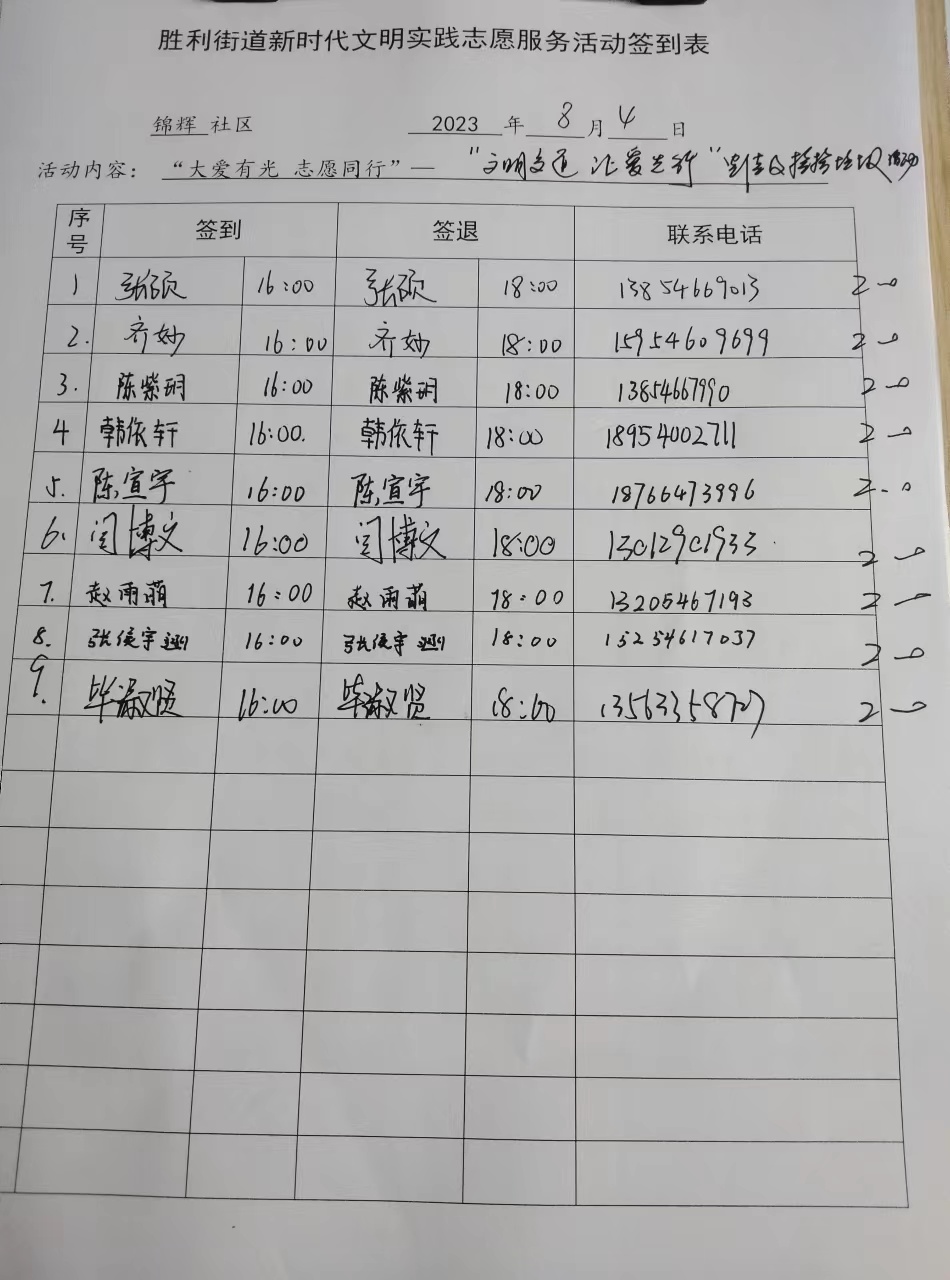 胜利街道新时代文明实践志愿服务活动签到表
锦辉 社区 2023 年 8 月 4 日
活动内容： “大爱有光 志愿同行”— “文明交通 汇爱先行” 捡拾垃圾 活动
序号 签到 签退 联系电话
1 张硕 16:00 张硕 18:00 13854669013 2
2. 齐妙 16:00 齐妙 18:00 15954609699 2
3. 陈紫玥 16:00 陈紫玥 18:00 13854667990 2
4 韩依轩 16:00. 韩依轩 18:00 18954002711 2
5. 陈宣宇 16:00 陈宣宇 18:00 18766473996 2
6. 闫博文 16:00 闫博文 18:00 13012901933 2
7. 赵雨萌 16:00 赵雨萌 18:00 13205467193 2
8. 16:00 18:00 15254617037 2
9. 毕淑贤 16:00 毕淑贤 18:00 2